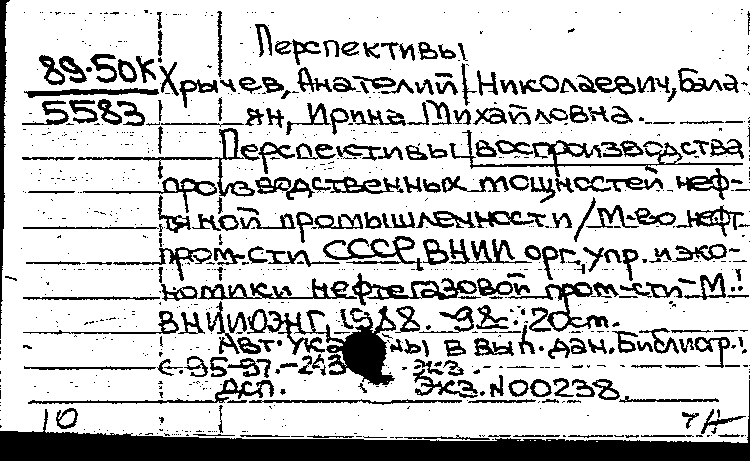 Перспективы
89-50К
5583
Хрычев, Анатолий Николаевич, Бала-
ян, Ирина Михайловна.
Перспективы воспроизводства
производственных мощностей неф-
тяной промышленности / М-во нефт.
пром-сти СССР, ВНИИ орг., упр. и эко-
номики нефтегазовой пром-сти - М.:
ВНИИОЭНГ, 1988. - 98с.; 20 см.
Авт. ука ны в вып. дан. Библиогр.:
с. 95-97. - 243 экз.
ДСП. Экз. N00238.
10